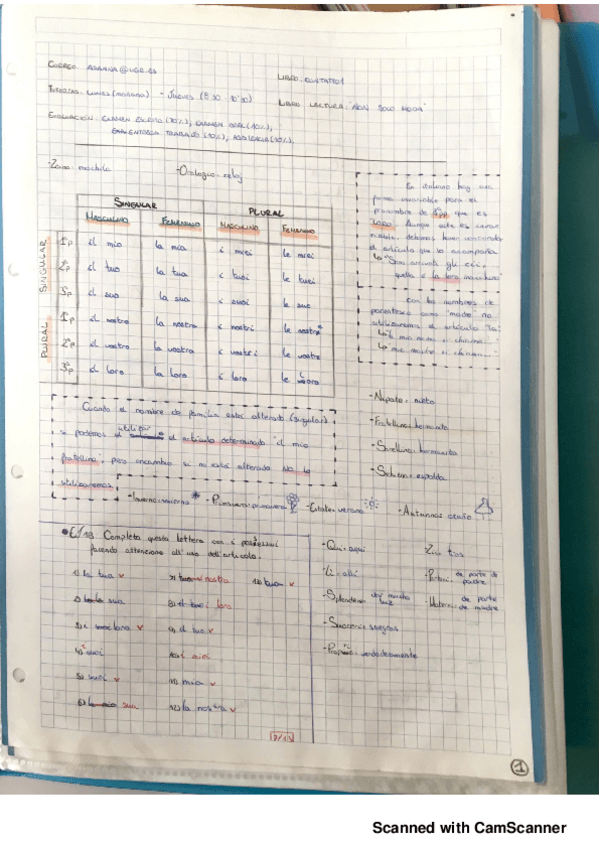 LIBRO: CONTATTO 1
TUTORÍAS: LUNES (MAÑANA) - JUEVES (8:30 - 10:30)
LIBRO LECTURA: "NON SOLO MODA"
EVALUACIÓN: EXAMEN ESCRITO (70%), EXAMEN ORAL (10%),
TRABAJO (10%), ASISTENCIA (10%).
- Zaino: mochila
- Orologio: reloj
SINGULAR PLURAL
MASCULINO FEMENINO MASCULINO FEMENINO
SINGULAR
1ªp il mio la mia i miei le mie
2ªp il tuo la tua i tuoi le
3ªp il suo la sua i suoi le sue
PLURAL
1ªp il nostro la nostra i nostri le nostre
2ªp il vostro la vostra i vostri le vostre
3ªp il loro la loro i loro le loro
En italiano hay una
forma invariable para el
pronombre de 3ªpp que es
LORO. Aunque este es
el artículo que lo acompaña
quella è la loro macchina"
Con los nombres de
parentesco como "madre" no
utilizaremos el artículo "la"
Cuando el nombre de familia está alterado (singular)
si podemos utilizar el artículo determinado "il mio
fratellino", pero encambio si no está alterado NO lo
utilizaremos.
- Nipote: nieto
- Fratellino: hermanito
- Sorellina: hermanita
- Schiena: espalda
- Inverno: invierno
- Primavera: primavera
- Estate: verano
- Autunno: otoño
• E/13 Completa questa lettera con i possessivi
facendo attenzione all'uso dell'articolo.
1) la tua v
7) tua nostra
13) tua v
2) la sua
8) i tuoi loro
3) loro v
9) il tuo v
4) i suoi
10) i miei
5) suoi v
11) mia v
6) la mia sua
12) la nostra v
- Qui: aquí
- Lì: allí
- Splendere: dar mucha luz
- Suoceri: suegros
- Proprio: verdaderamente
Zii: tíos
- Paterni: de parte de padre
- Materni: de parte de madre
1
Scanned with CamScanner